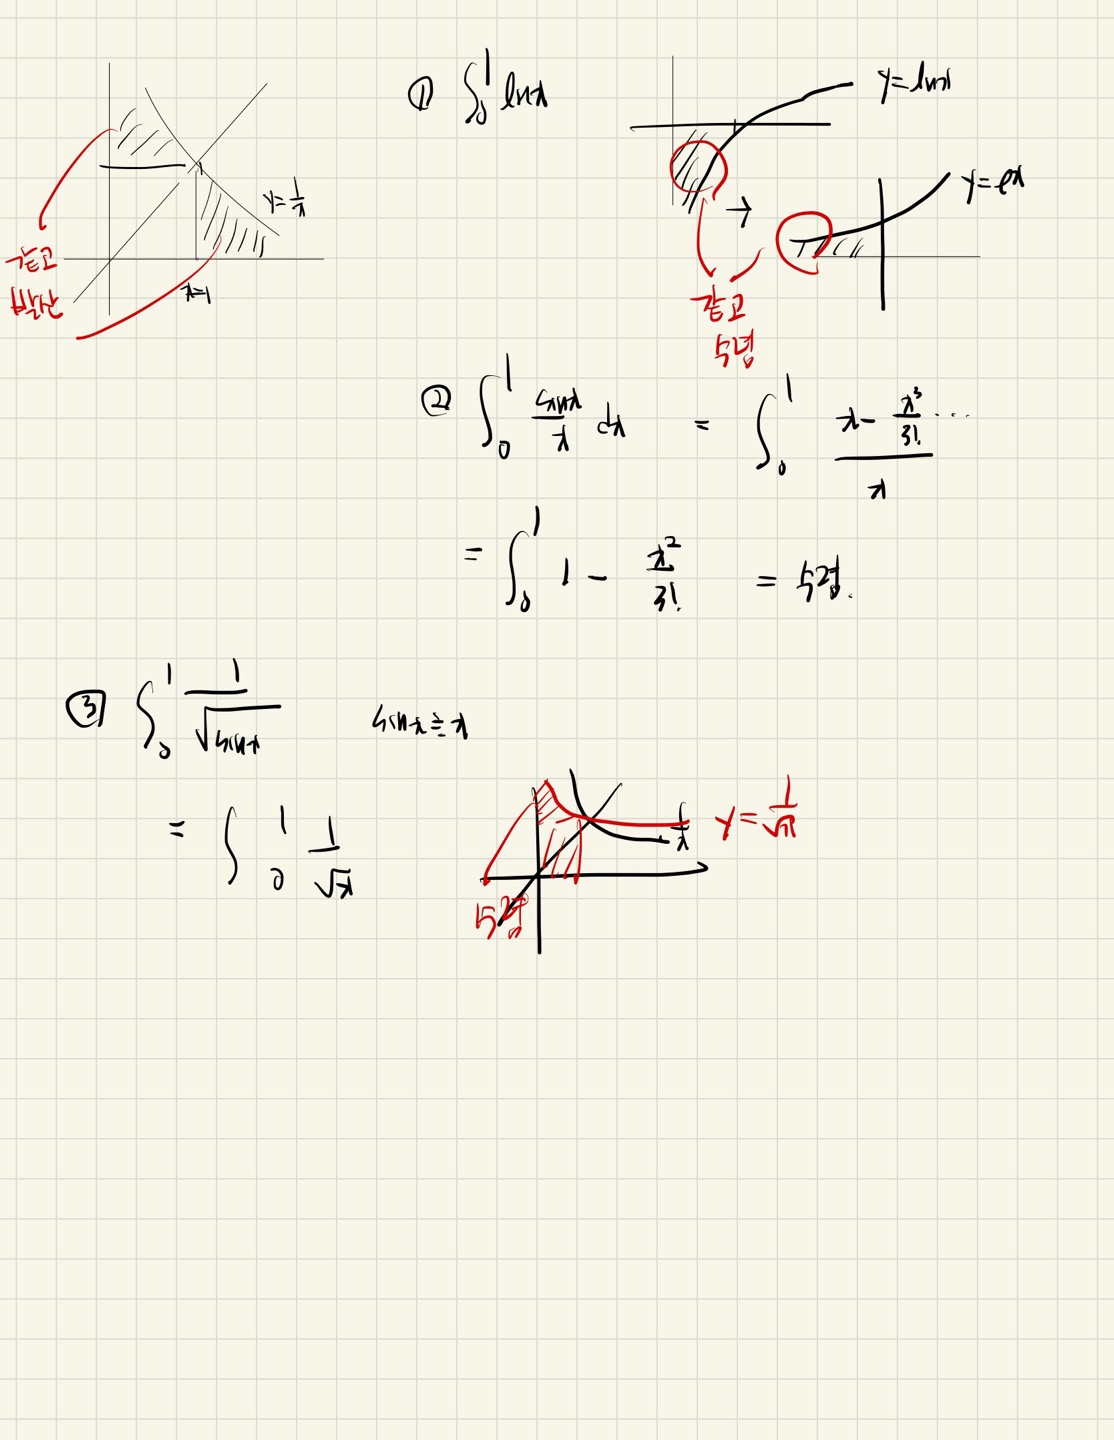 y=1/x
x=1
같고
발산
① ∫₀¹ lnx
y=lnx
→
y=eˣ
같고
수렴
② ∫₀¹ sinx/x dx = ∫₀¹ (x - x³/3! ...)/x
= ∫₀¹ 1 - x²/3! = 수렴.
③ ∫₀¹ 1/√sinx sinx ≒ x
= ∫₀¹ 1/√x
1/x
y=1/√x
수렴